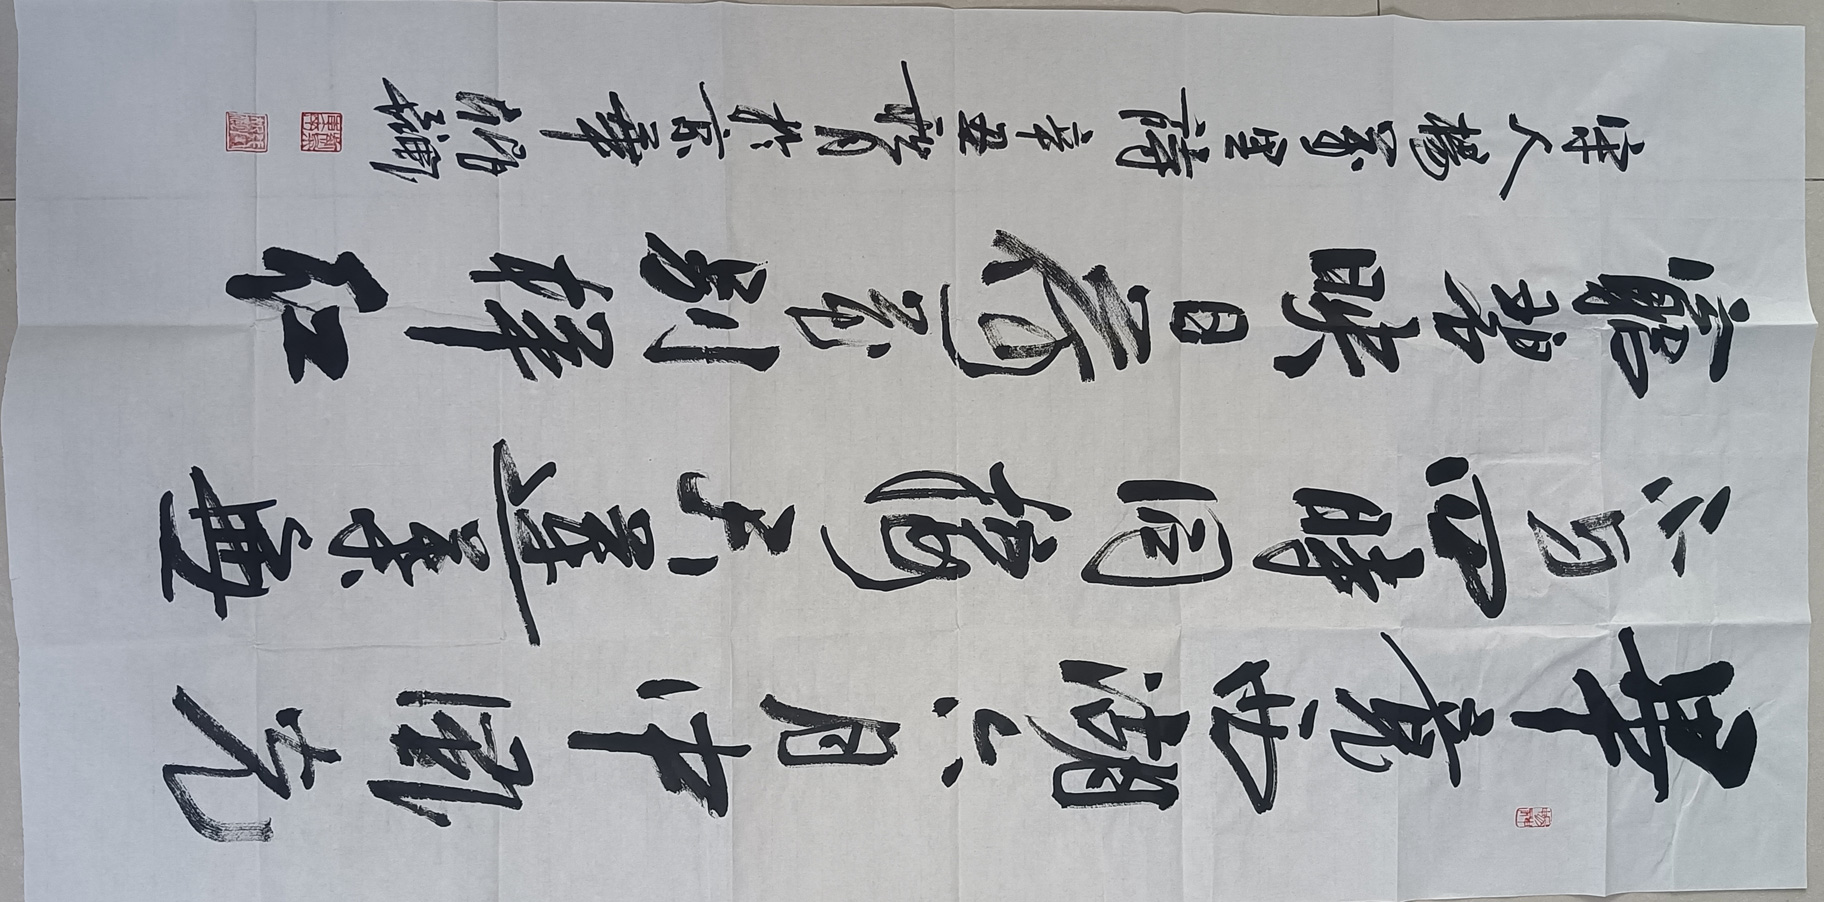 畢竟西湖六月中風光
不与四時同接天蓮葉無
窮碧映日荷花别樣紅
宋人楊萬里詩辛丑臘月於京華